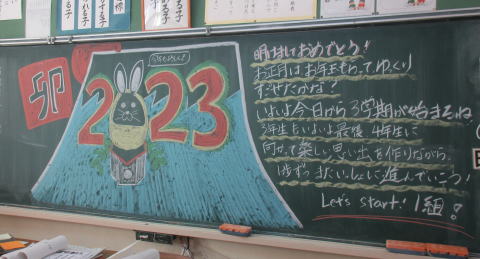 卯
2023
明けましておめでとう!
お正月はお年玉もらってゆっくり
すごせたかな?
いよいよ今日から3学期が始まるね
3年生もいよいよ最後 4年生に
向かって楽しい思い出を作りながら
1歩ずつ またいっしょに進んでいこう!
Let's start! 1組!